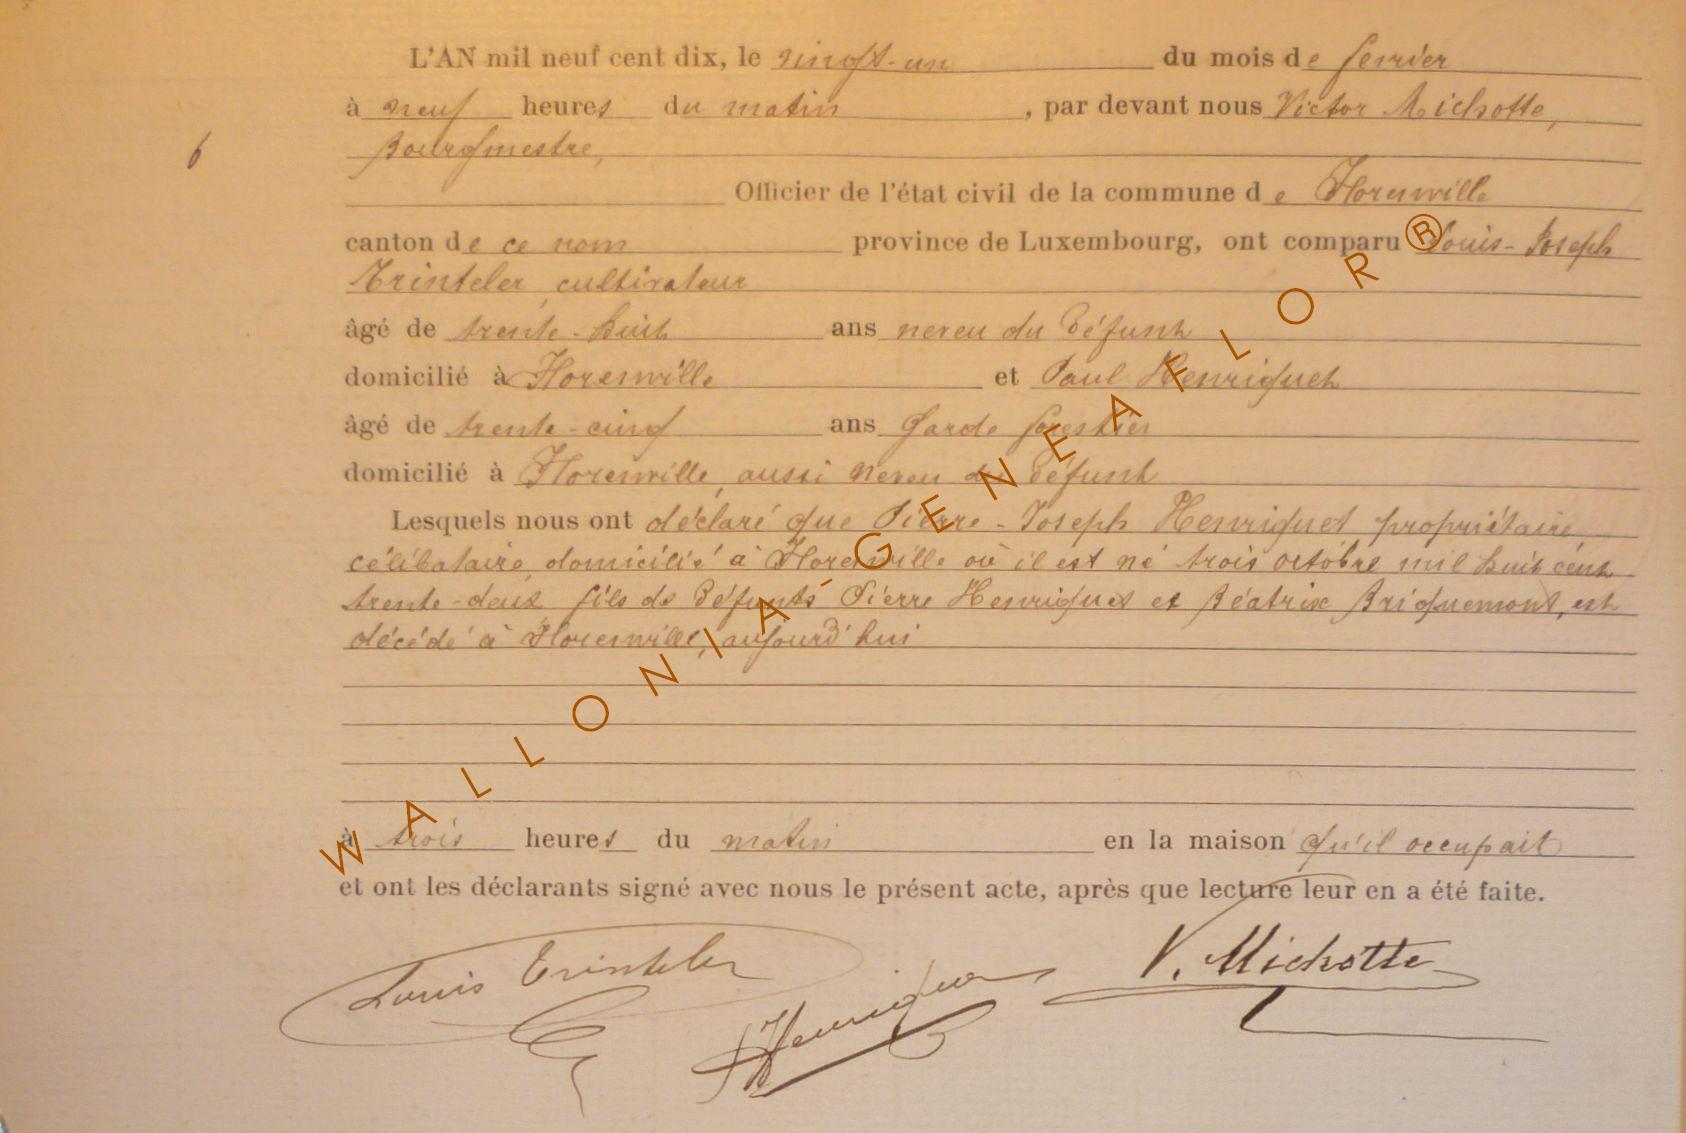 L'AN mil neuf cent dix, le vingt-un du mois de février
à neuf heures du matin, par devant nous Victor Michotte,
6
Bourgmestre,
Officier de l'état civil de la commune de Florenville
canton de ce nom province de Luxembourg, ont comparu Louis-Joseph
Trinteler, cultivateur
âgé de trente-huit ans neveu du défunt
domicilié à Florenville et Paul Henriquet
âgé de trente-cinq ans Garde forestier
domicilié à Florenville, aussi neveu du défunt
Lesquels nous ont déclaré que Pierre-Joseph Henriquet propriétaire,
célibataire, domicilié à Florenville où il est né trois octobre mil huit cent
trente-deux, fils de défunts Pierre Henriquet et Béatrix Briquemont, est
décédé à Florenville, aujourd'hui
à trois heures du matin en la maison qu'il occupait
et ont les déclarants signé avec nous le présent acte, après que lecture leur en a été faite.
Louis Trinteler
Henriquet
V. Michotte
WALLONIA-GENEAFLOR®